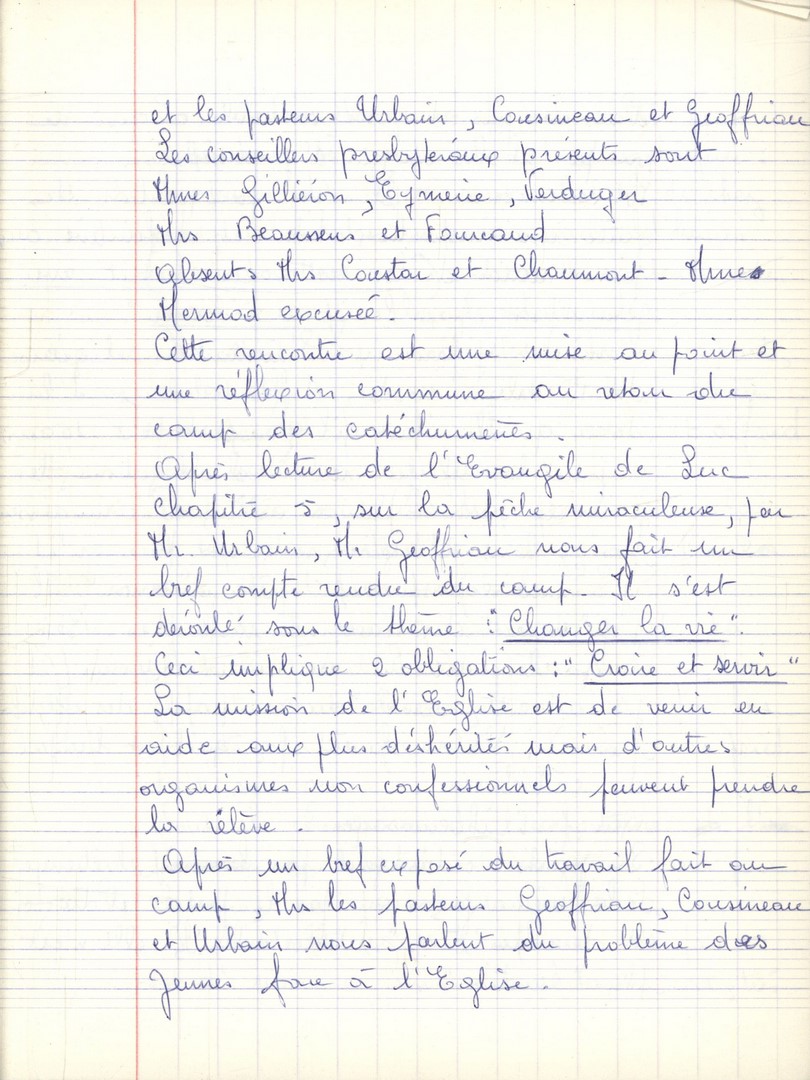 et les pasteurs Urbain, Cousineau et Geoffriau
Les conseillers presbytéraux présents sont
Mmes Gilliéron, Eymerie, Verduger
Mrs Beaussens et Fourcaud
Absents Mrs Coustan et Chaumont - Mme
Mermod excusée.
Cette rencontre est une mise au point et
une réflexion commune au retour du
camp des catéchumènes.
Après lecture de l'Evangile de Luc
chapitre 5, sur la pêche miraculeuse, par
Mr. Urbain, Mr Geoffriau nous fait un
bref compte rendu du camp. Il s'est
déroulé sous le thème : "Changer la vie".
Ceci implique 2 obligations : "Croire et servir"
La mission de l'Eglise est de venir en
aide aux plus déshérités mais d'autres
organismes non confessionnels peuvent prendre
la relève.
Après un bref exposé du travail fait au
camp, Mrs les pasteurs Geoffriau, Cousineau
et Urbain nous parlent du problème des
Jeunes face à l'Eglise.